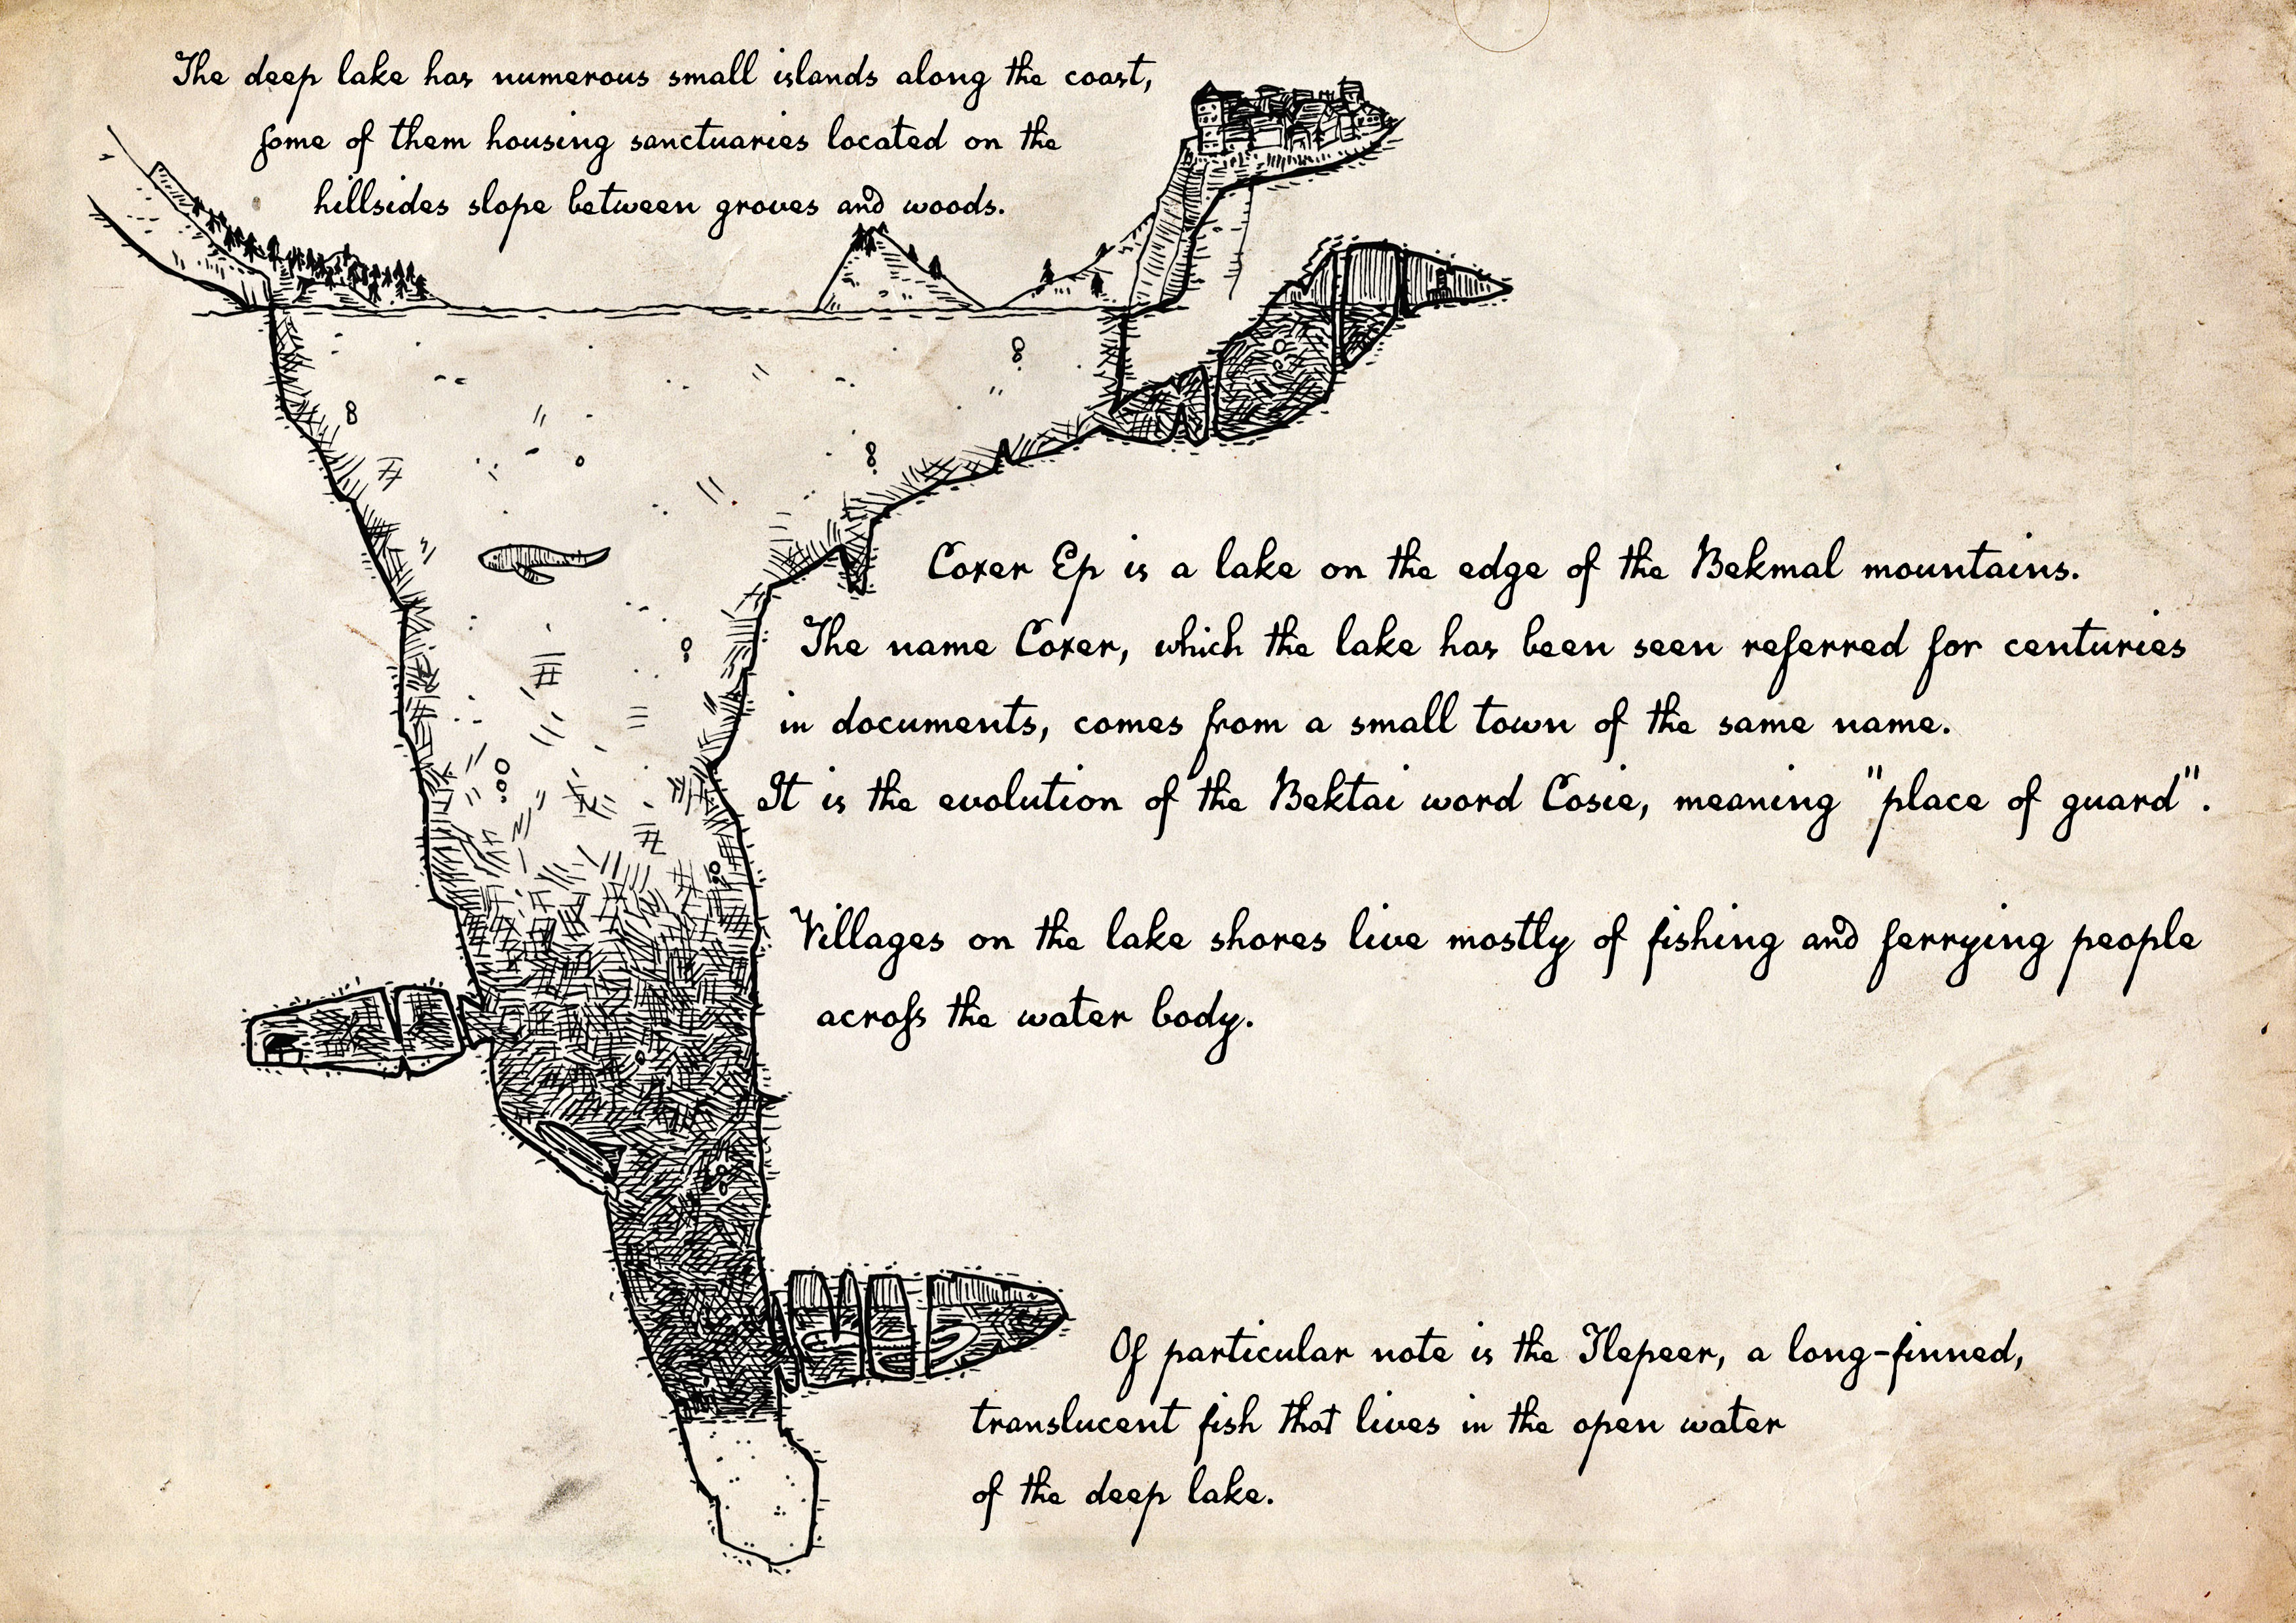 The deep lake has numerous small islands along the coast,
some of them housing sanctuaries located on the
hillsides slope between groves and woods.
Coxer Ep is a lake on the edge of the Bekmal mountains.
The name Coxer, which the lake has been seen referred for centuries
in documents, comes from a small town of the same name.
It is the evolution of the Bektai word Cosie, meaning "place of guard".
Villages on the lake shores live mostly of fishing and ferrying people
across the water body.
Of particular note is the Ilepeer, a long-finned,
translucent fish that lives in the open water
of the deep lake.